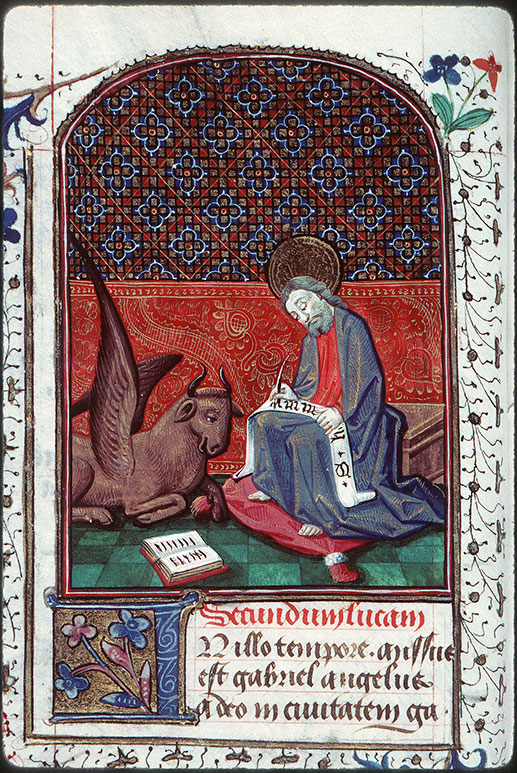 Secundum lucam
IN illo tempore. missus
est gabriel angelus
a deo in ciuitatem ga